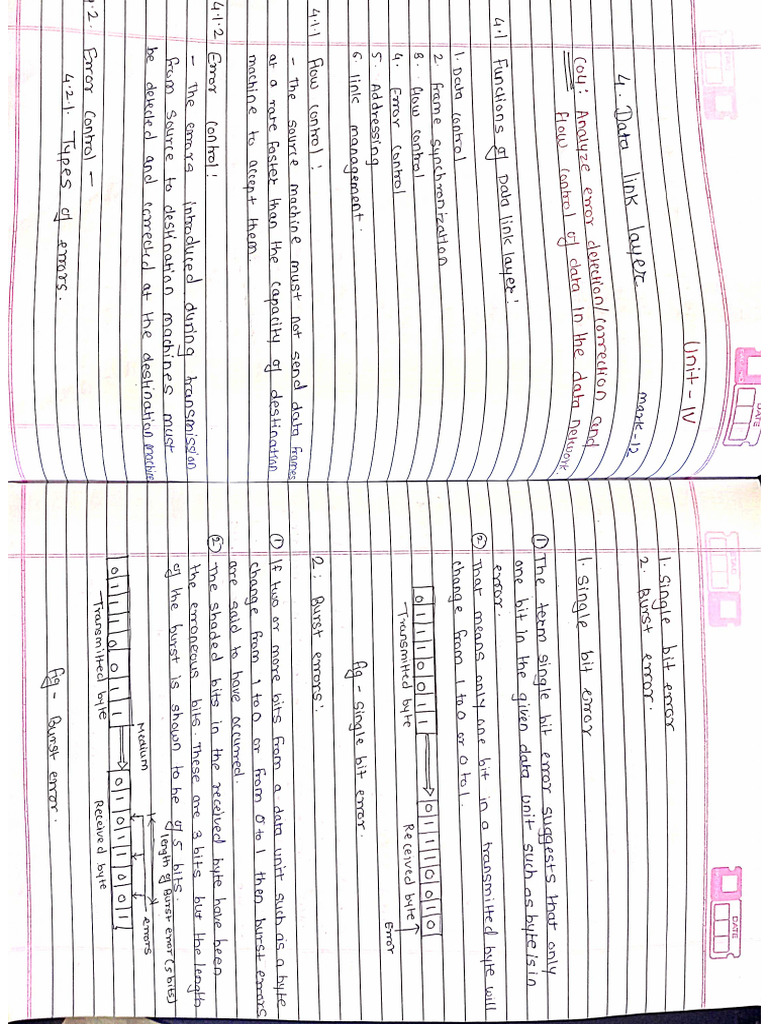 DATE
Unit - IV
4. Data link layer
mark-12
CO4: Analyze error detection/correction and
flow control of data in the data network.
4.1 Functions of Data link layer:
1. Data control
2. Frame synchronization
3. flow control
4. Error control
5. Addressing
6. link management.
4.1.1 flow control:
- The source machine must not send data frames
at a rate faster than the capacity of destination
machine to accept them.
4.1.2 Error control:
- The errors introduced during transmission
from source to destination machines must
be detected and corrected at the destination machine
.2. Error control -
4.2.1. Types of errors.
DATE
1. Single bit error
2. Burst error.
1. Single bit error
① The term single bit error suggests that only
one bit in the given data unit such as byte is in
error.
② That means only one bit in a transmitted byte will
change from 1 to 0 or 0 to 1.
0 1 1 1 0 0 1 1
0 1 1 1 0 0 1 0
Transmitted byte
Received byte
Error
fig - single bit error.
2: Burst errors:
① If two or more bits from a data unit such as a byte
change from 1 to 0 or from 0 to 1 then burst errors
are said to have occurred.
② The shaded bits in the received byte have been
the erroneous bits. These are 3 bits but the length
of the burst is shown to be of 5 bits.
length of Burst error (5 bits)
Medium
errors
0 1 1 1 0 0 1 1
0 1 0 1 1 0 0 1
Transmitted byte
Received byte
fig - Burst error.